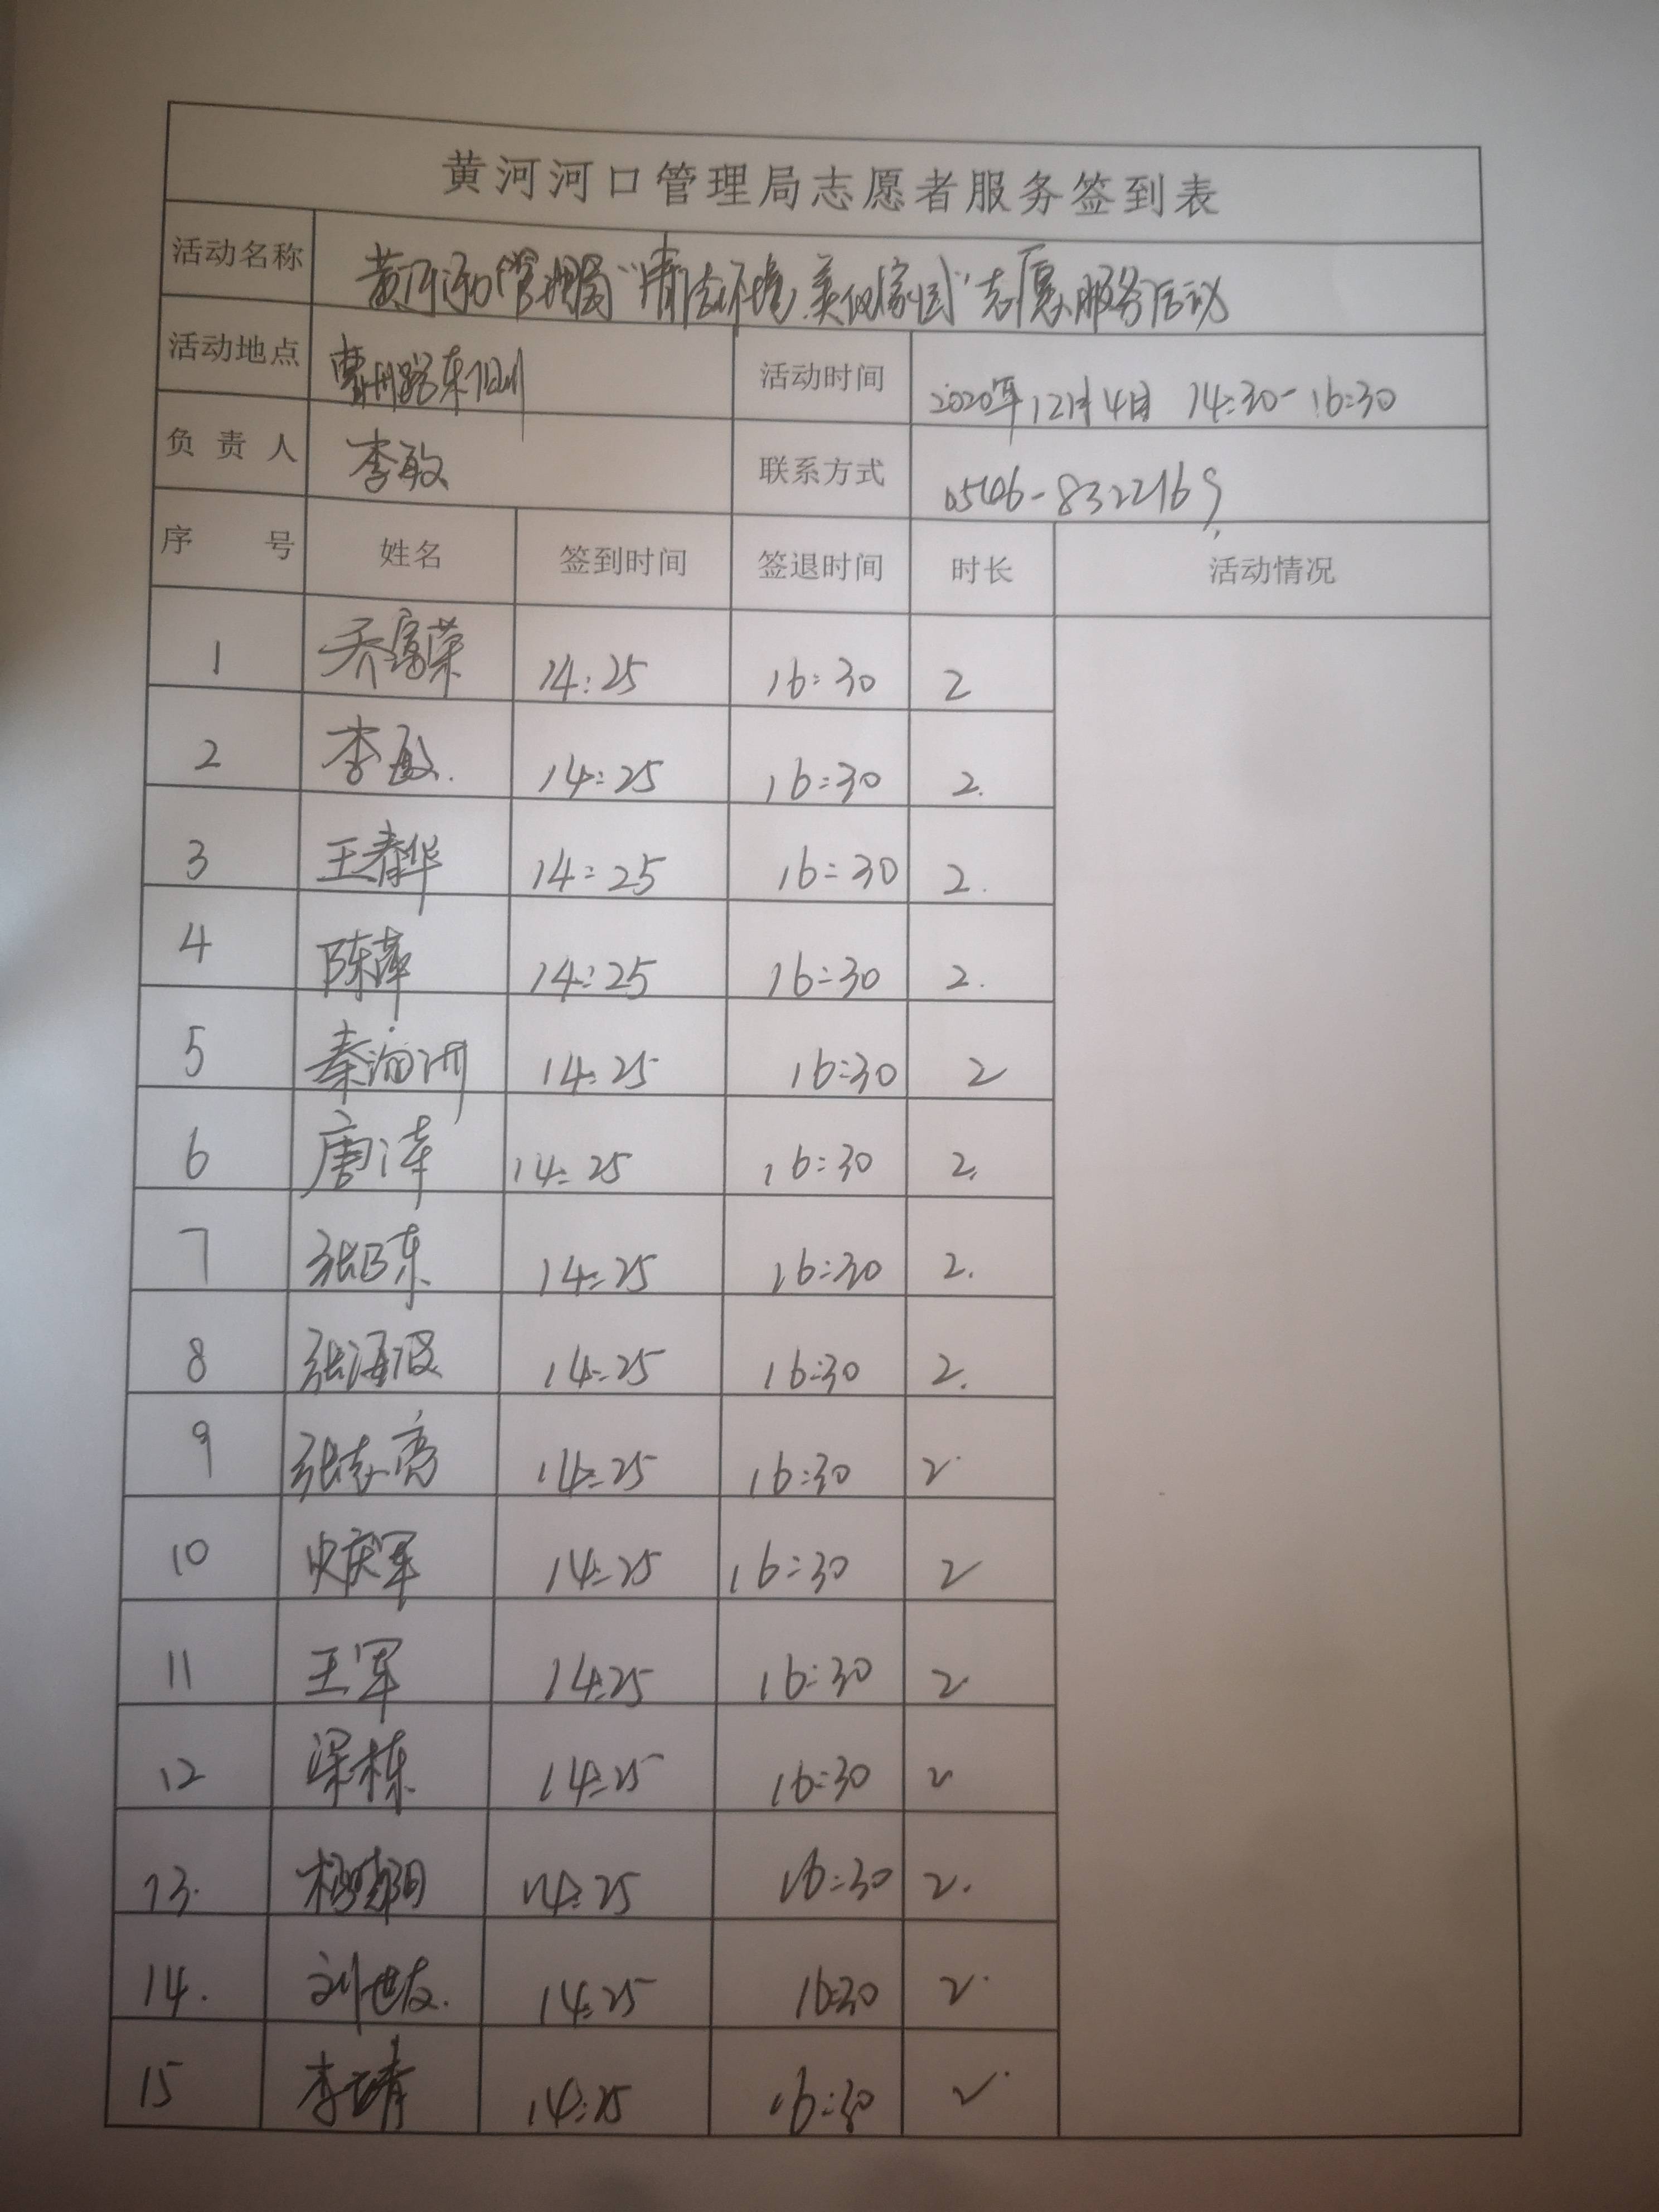 黄河河口管理局志愿者服务签到表
活动名称 黄河河口管理局“清洁环境,美化家园”志愿服务活动
活动地点 曹州路东侧 活动时间 2020年12月4日 14:30-16:30
负责人 李敏 联系方式 0546-8322169
序号 姓名 签到时间 签退时间 时长 活动情况
1 乔富荣 14:25 16:30 2
2 李敏. 14:25 16:30 2.
3 王春华 14:25 16:30 2.
4 陈萍 14:25 16:30 2.
5 秦 14:25 16:30 2
6 唐泽 14:25 16:30 2.
7 张 东 14:25 16:30 2.
8 张海波 14:25 16:30 2.
9 张志亮 14:25 16:30 2.
10 史庆军 14:25 16:30 2
11 王军 14:25 16:30 2
12 梁栋 14:25 16:30 2
13. 杨 阳 14:25 16:30 2.
14. 刘世友. 14:25 16:30 2.
15 李 14:25 16:30 2.